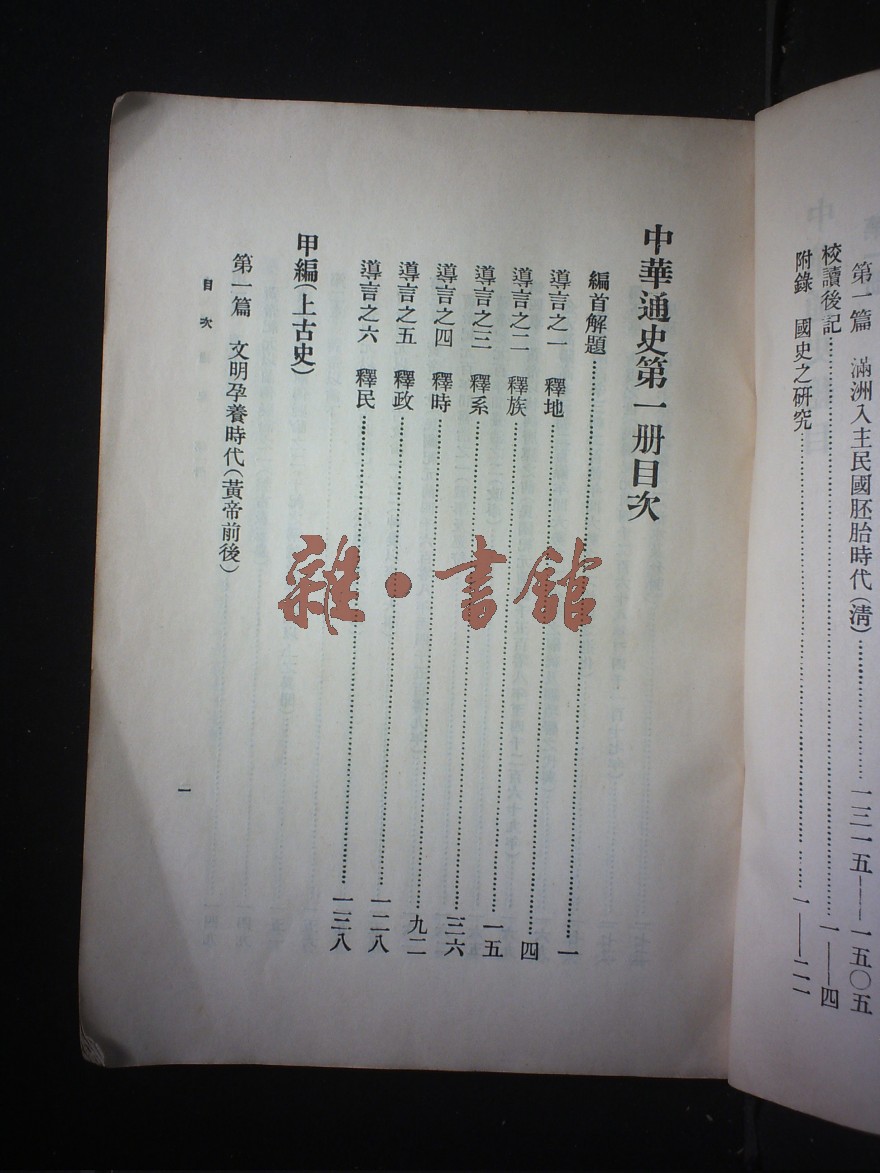 第一篇 滿洲入主民國胚胎時代（清）……一三一五——一五〇五
校讀後記……一——四
附錄 國史之研究……一——二一
中華通史第一册目次
編首解題……一
導言之一 釋地……四
導言之二 釋族……一五
導言之三 釋系……三六
導言之四 釋時……九二
導言之五 釋政……一二八
導言之六 釋民……一三八
甲編（上古史）
第一篇 文明孕養時代（黃帝前後）
目次
一
雜·書館